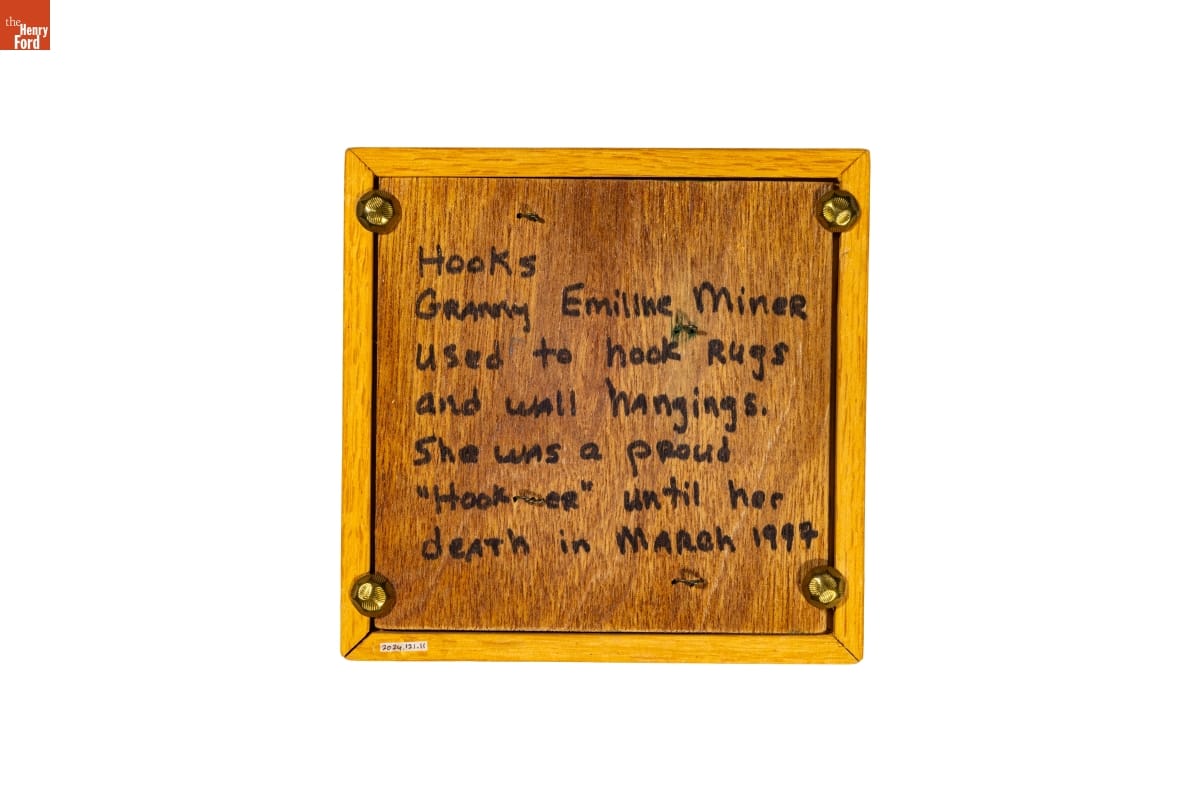 the
Henry
Ford
Hooks
GRANNY Emiline MineR
used to hook Rugs
and wall hangings.
She was a proud
"Hooker" until her
death in MARch 1997
2024.121.11